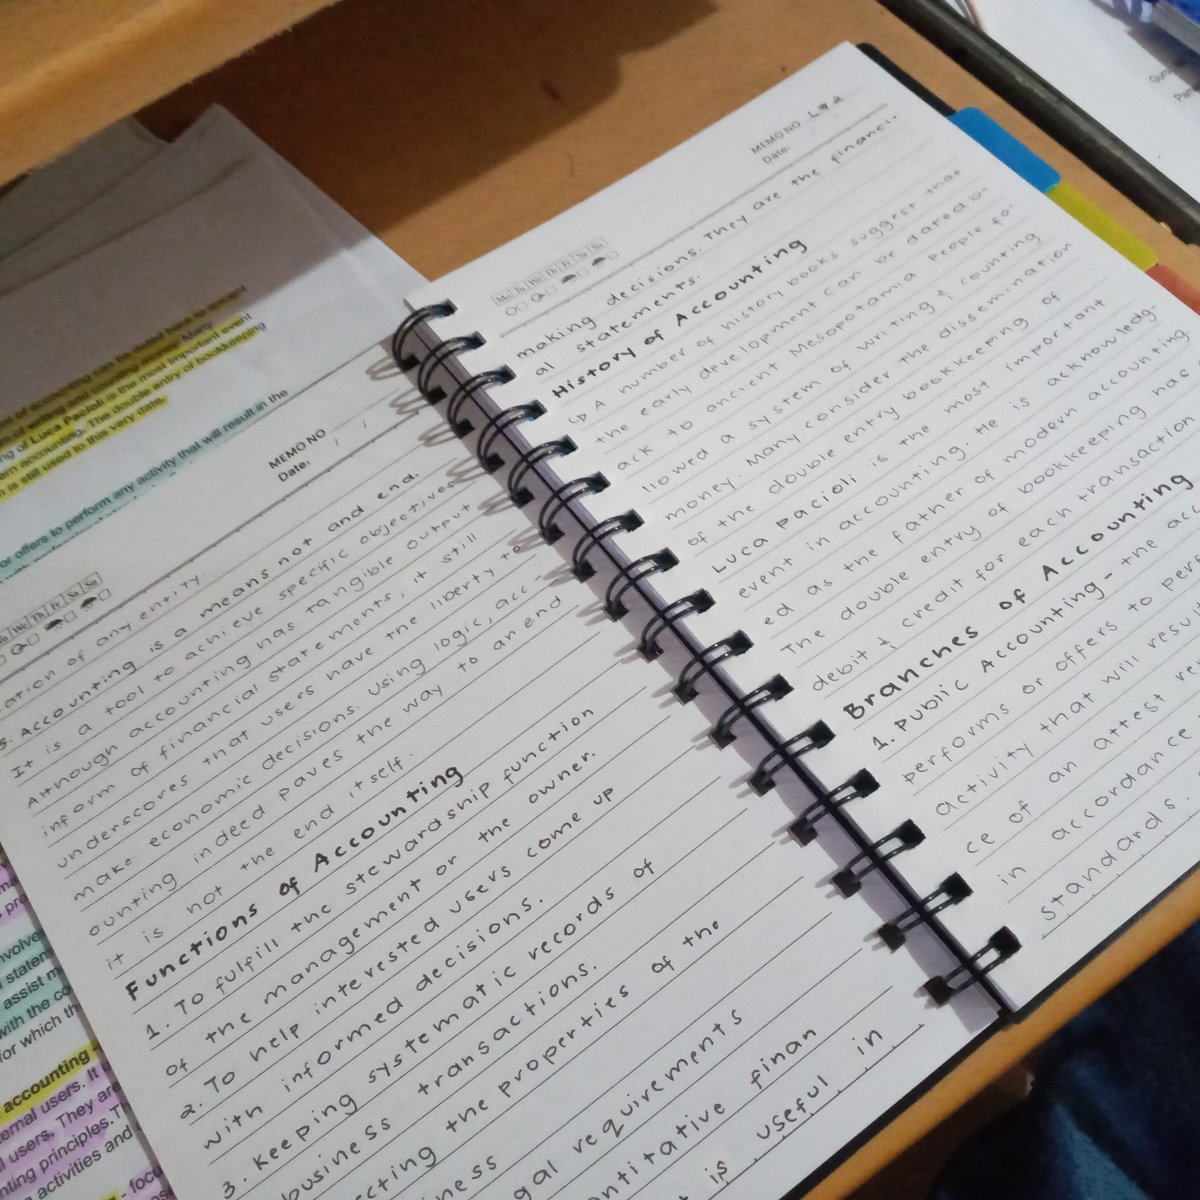 of accounting can be dated back to ancient
of writing and counting money. Many
ng of Luca Pacioli is the most important event
rn accounting. The double entry of bookkeeping
h is still used to this very date.
or offers to perform any activity that will result in the
MEMO NO
Date:
Mo Tu We Th Fr Sa Su
ation of any entity
5. Accounting is a means not and end.
It is a tool to achieve specific objectives
Although accounting has tangible output
inform of financial statements, it still
underscores that users have the liberty to
make economic decisions. Using logic, acc-
ounting indeed paves the way to an end
it is not the end itself.
Functions of Accounting
1. To fulfill the stewardship function
of the management or the owner.
2. To help interested users come up
with informed decisions.
3. Keeping systematic records of
business transactions.
cting the properties of the
ness
gal requirements
ntitative finan
t is useful in
MEMO NO L & 2
Date:
Mo Tu We Th Fr Sa Su
making decisions. They are the financi-
al statements.
History of Accounting
A number of history books suggest that
the early development can be dated b-
ack to ancient Mesopotamia people fo-
llowed a system of writing & counting
money. Many consider the dissemination
of the double entry bookkeeping of
Luca Pacioli is the most important
event in accounting. He is acknowledg-
ed as the father of modern accounting.
The double entry of bookkeeping hac
debit & credit for each transaction
Branches of Accounting
1. Public Accounting - the acc
performs or offers to perf
activity that will resu
ce of an attest re
in accordance
standards.
involve
statem
assist m
with the co
for which th
accounting
ernal users. It
l users. They are
nting principles. T
activities and
- foc